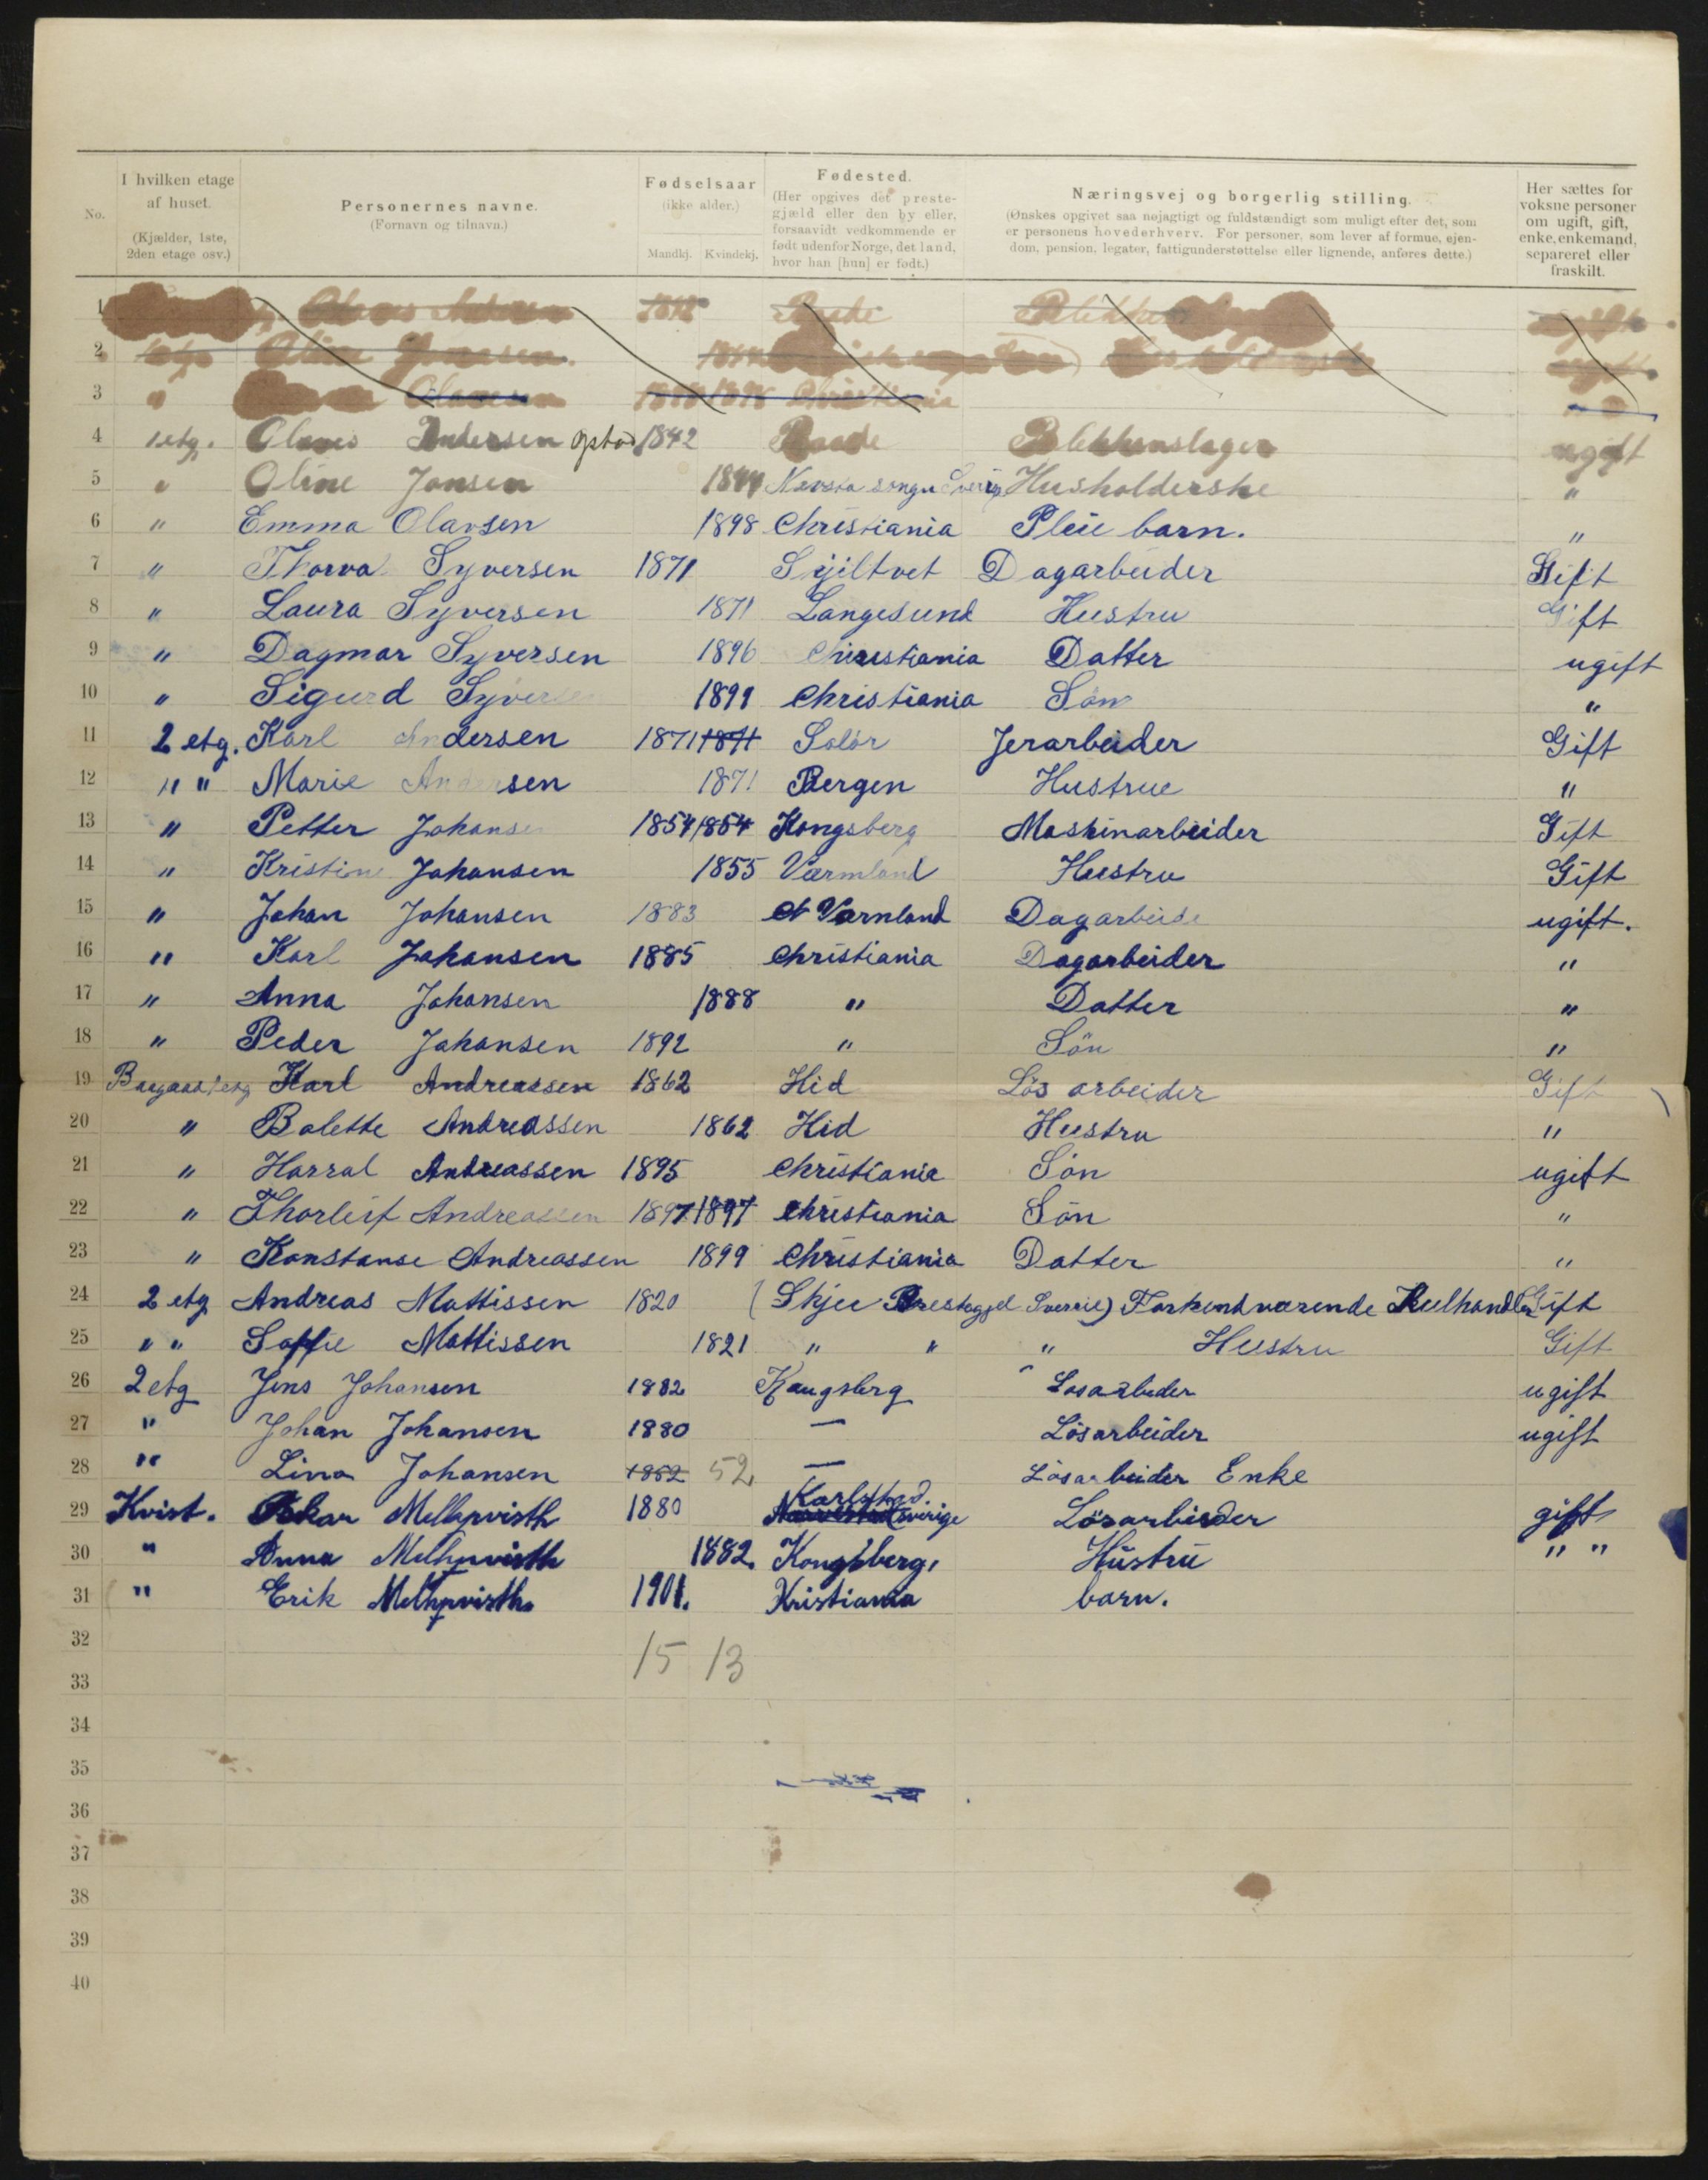 No. I hvilken etage af huset. (Kjælder, 1ste, 2den etage osv.) Personernes navne. (Fornavn og tilnavn.) Fødselsaar (ikke alder.) Mandkj. Kvindekj. Fødested. (Her opgives det prestegjæld eller den by eller, forsaavidt vedkommende er født udenfor Norge, det land, hvor han [hun] er født.) Næringsvej og borgerlig stilling. (Ønskes opgivet saa nøjagtigt og fuldstændigt som muligt efter det, som er personens hovederhverv. For personer, som lever af formue, ejendom, pension, legater, fattigunderstøttelse eller lignende, anføres dette.) Her sættes for voksne personer om ugift, gift, enke, enkemand, separeret eller fraskilt.
1
2 Oline
3 " Christiania
4 1 etg. Andersen 1842 Raade Blikkenslager ugift
5 " Oline Jansen 1844 Husholderske "
6 " Emma Olavsen 1898 Christiania Pleie barn. "
7 " Thorva Syversen 1871 Dagarbeider Gift
8 " Laura Syversen 1871 Langesund Hustru Gift
9 " Dagmar Syversen 1896 Christiania Datter ugift
10 " Sigurd Syversen 1899 Christiania Sön "
11 2 etg. Karl Andersen 1871 1871 Solör Jerarbeider Gift
12 " " Marie Andersen 1871 Bergen Hustrue "
13 " Petter Johansen 1854 1854 Kongsberg Maskinarbeider Gift
14 " Kristine Johansen 1855 Värmland Hustru Gift
15 " Johan Johansen 1883 Varnland Dagarbeide ugift.
16 " Karl Johansen 1885 Christiania Dagarbeider "
17 " Anna Johansen 1888 " Datter "
18 " Peder Johansen 1892 " Sön "
19 Karl Andreassen 1862 Hid Lös arbeider Gift
20 " Bolette Andreassen 1862 Hid Hustru "
21 " Harral Andreassen 1895 Christiania Sön ugift
22 " Thorleif Andreassen 1897 1897 Christiania Sön "
23 " Konstanse Andreassen 1899 Christiania Datter "
24 2 etg Andreas Mattissen 1820 (Skjee Prestegjel Sverrie) Forhendværende Kulhandler Gift
25 " " Soffie Mattissen 1821 " " " Hustru Gift
26 2 etg Jens Johansen 1882 Kongsberg Losarbeder ugift
27 " Johan Johansen 1880 — Lösarbeider ugift
28 " Lina Johansen 1852 52 — Lösarbeider Enke
29 Kvist. Oskar Melhqvisth 1880 Karlstad. Sverige Lösarbieder gift
30 " Anna Melhqvisth 1882. Kongsberg, Hüstrü " "
31 " Erik Melhqvisth. 1901. Kristiania barn.
32 15 13
33
34
35
36
37
38
39
40